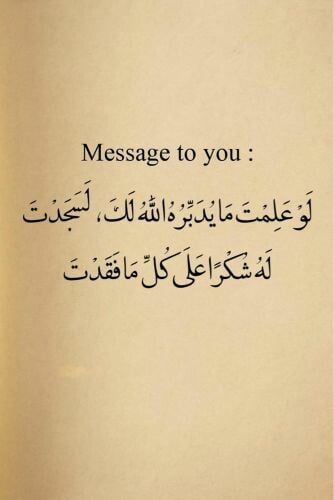 Message to you :
لَوْ عَلِمْتَ مَا يُدَبِّرُهُ اللهُ لَكَ، لَسَجَدْتَ
لَهُ شُكْرًا عَلَى كُلِّ مَا فَقَدْتَ